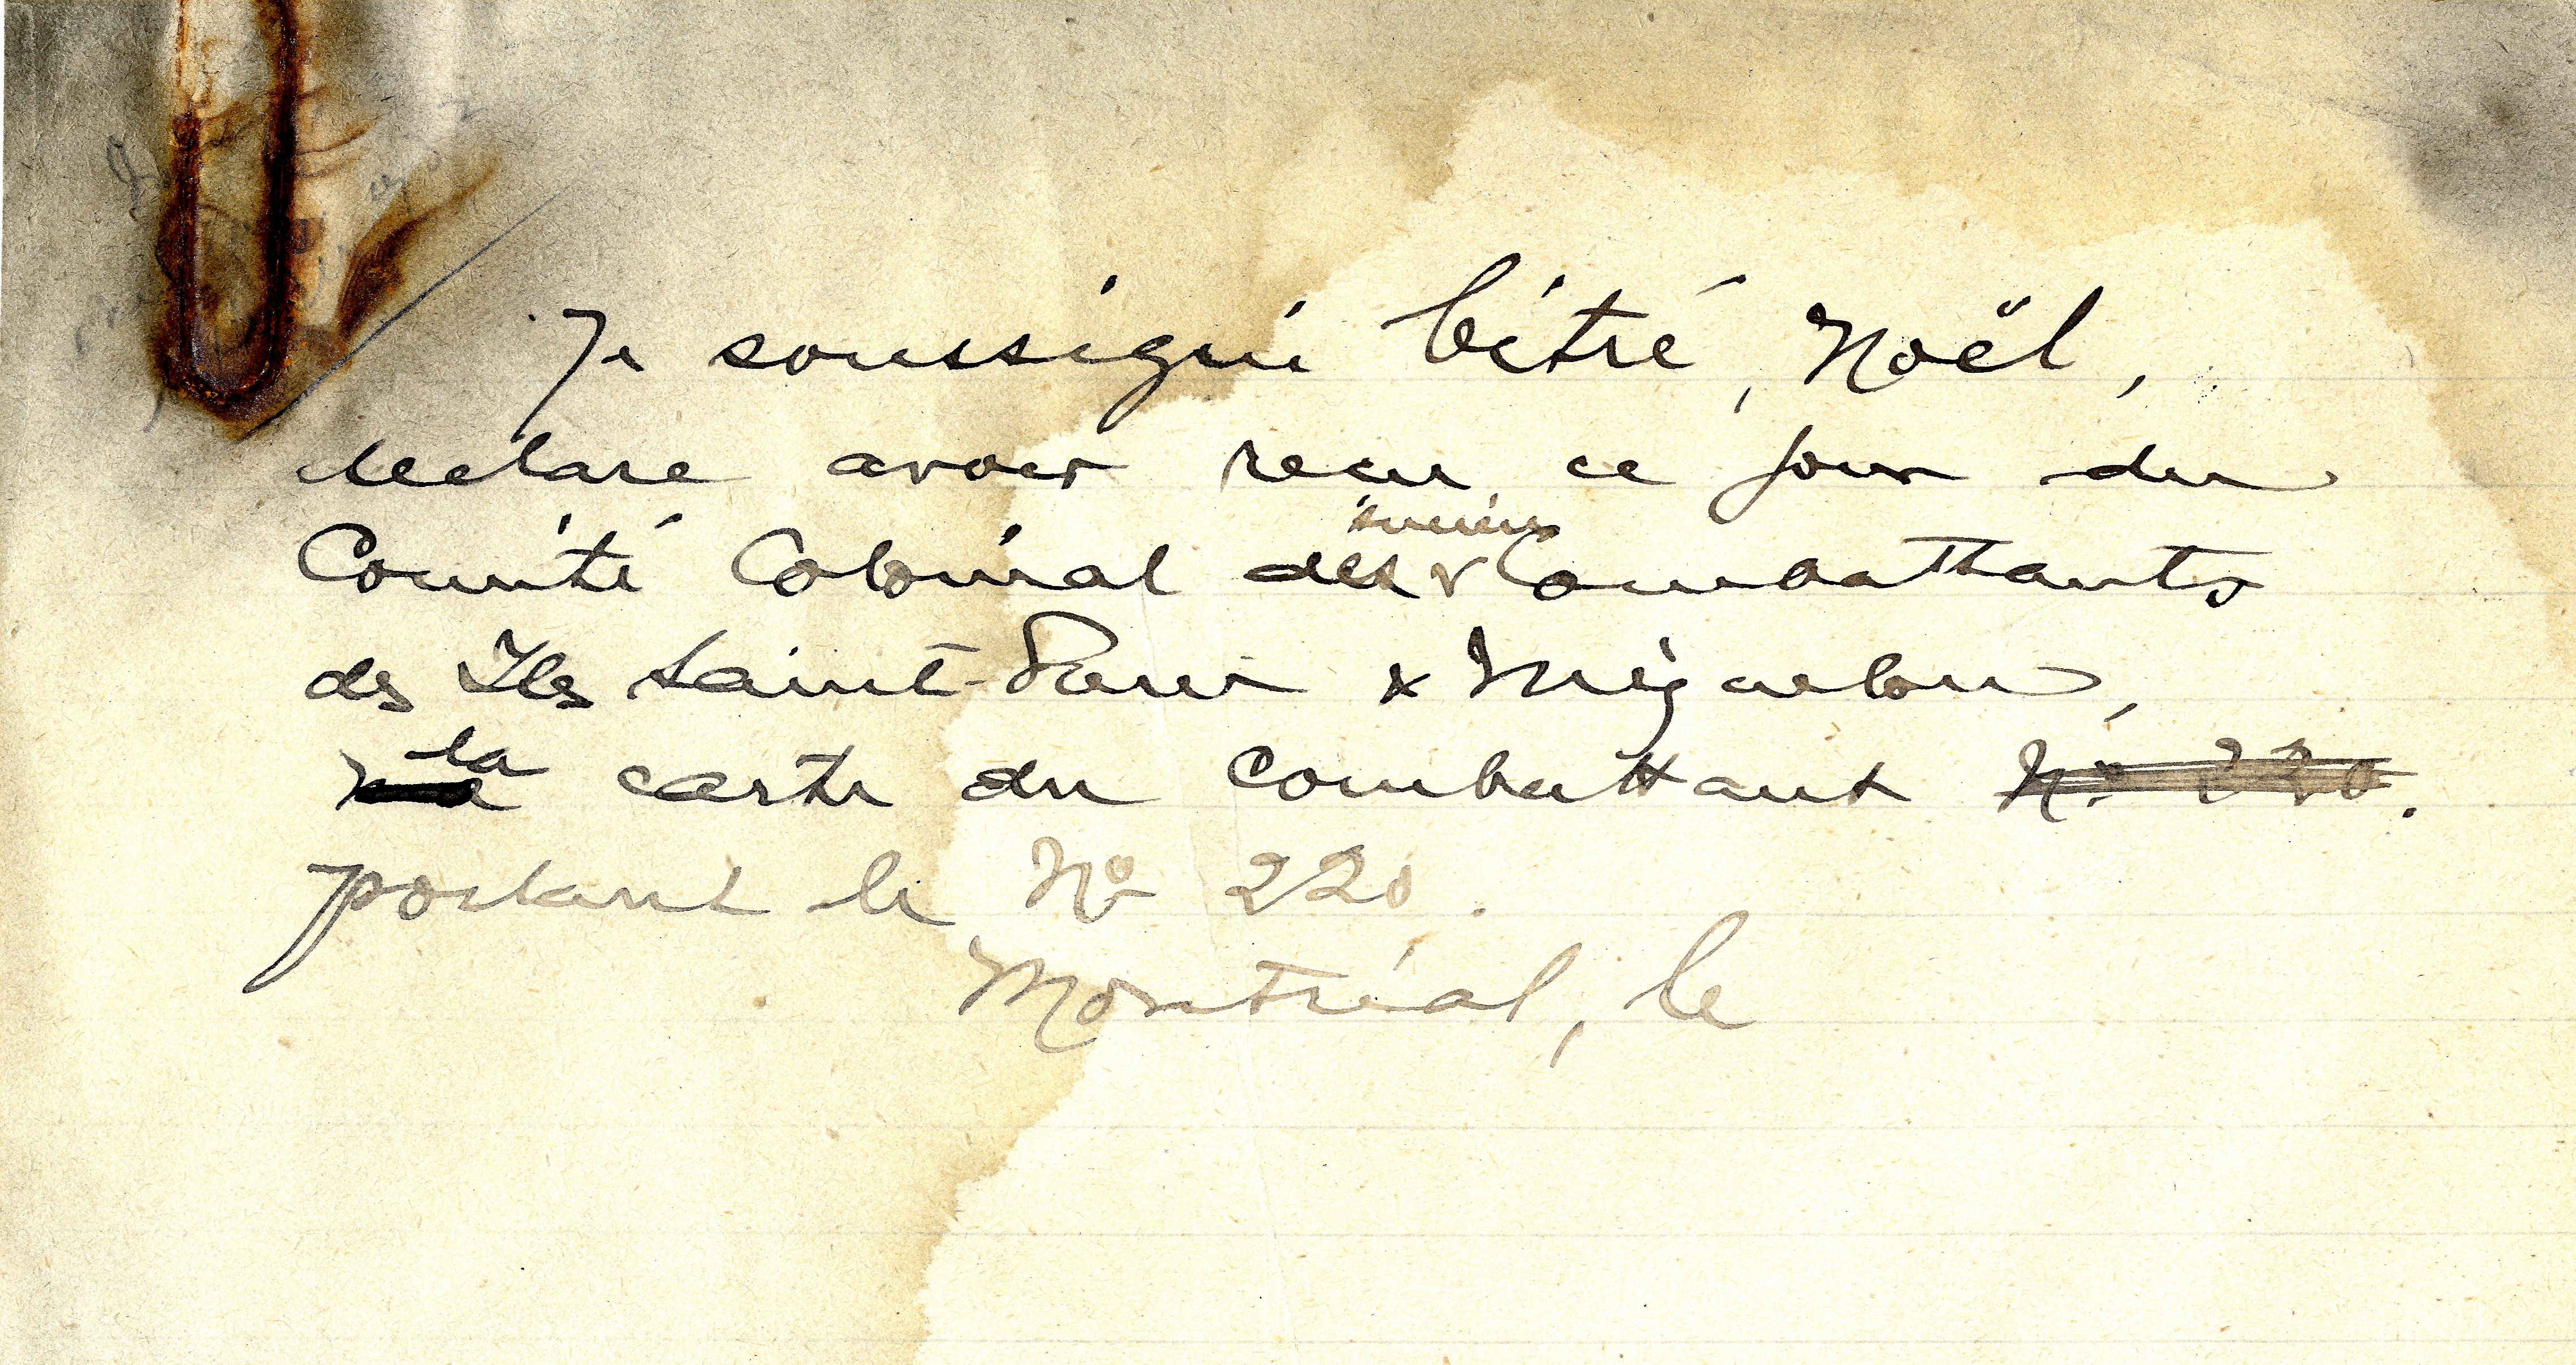 Je soussigné Cétré, Noël,
declare avoir recu ce jour du
Comité Colonial des anciens Combattants
des Iles Saint-Pierre & Miquelon,
la carte du combattant N° 220.
portant le N° 220.
Montréal, le